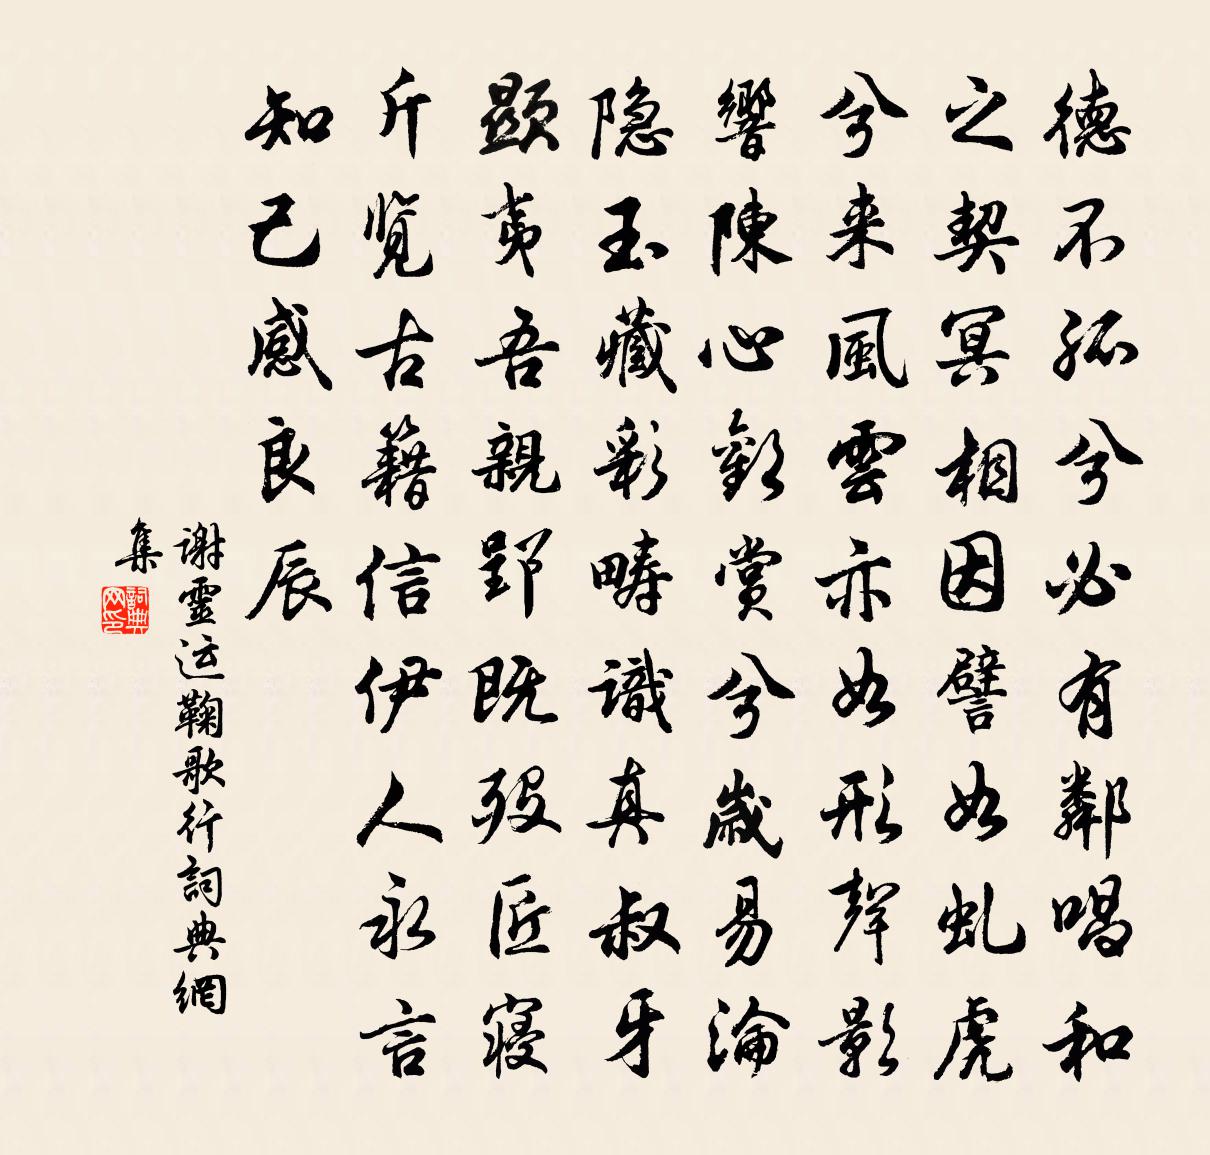 德不孤兮必有鄰唱和
之契冥相因譬如虬虎
兮来風雲亦如形聲影
響陳心歡賞兮歲易淪
隐玉藏彩疇識真叔牙
顯夷吾親郢既殁匠寝
斤览古籍信伊人永言
知己感良辰
謝靈运鞠歌行詞典網
集
詞典
网印